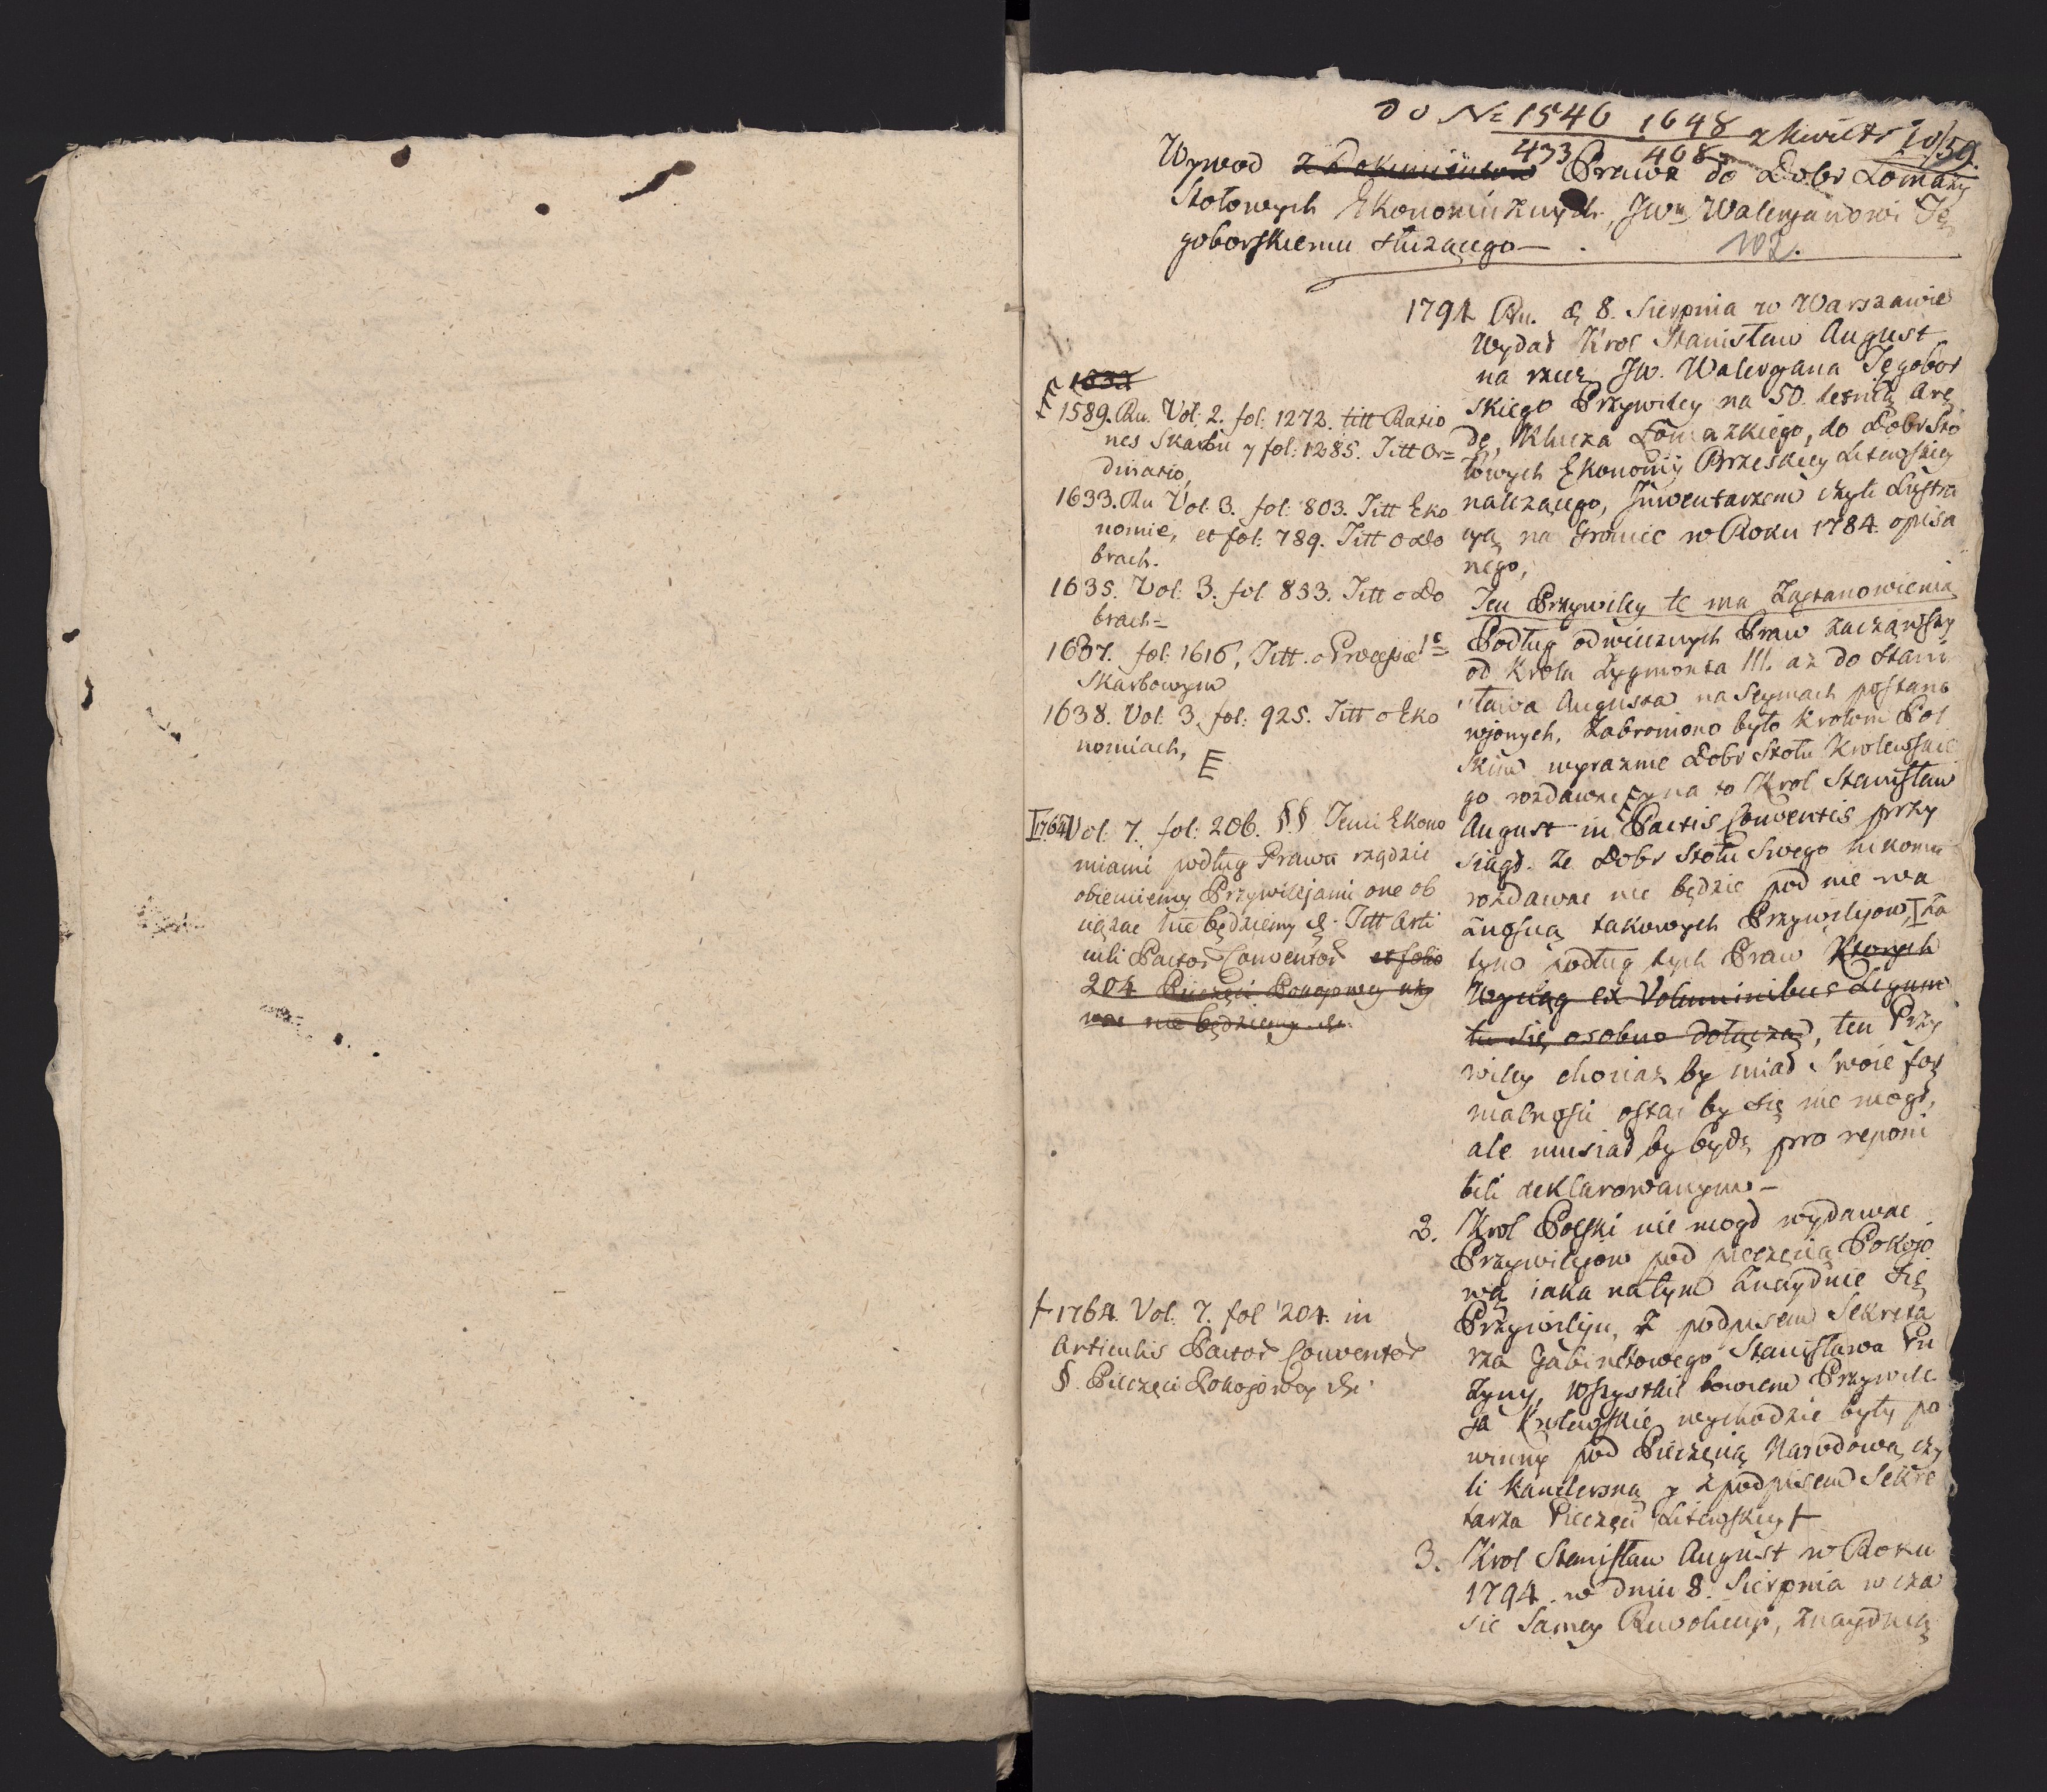 do N= 1546 1648 z kwietn 10/59.
433 468
Wywod z Dokumentow Prawa do Dobr Łomazy
Stołowych Ekonomicznych, Jwu Waleryanowi Tę
goborskiemu służącego —
102.
1794 Ru. d. 8. Sierpnia w Warszawie
Wydał Krol Stanisław August
na rzecz Jw. Waleryana Tęgobor
skiego Przywiley na 50. letnią Arę
dę, Klucza Łomazkiego, do Dobr Sto
łowych Ekonomij Brzeskiey Litewskiey
nalezącego, Inwentarzem czyli Lustra
cyą na Grunic w Roku 1784. opisa
nego,
Ten Przywiley te ma Zastanowienia
1e = Podług odwiecznych Praw zacząwszy
od Krola Zygmonta III. az do Stani
sława Augusta na Seymach postano
wionych, Zabroniono było Krolom Pol
skim wyraznie Dobr Stołu Krolewskie
go rozdawac E y na to Krol Stanisław
August in Pactis Conventis przy
siągł. ze Dobr Stołu Swego nikomu
rozdawac nie będzie pod nie wa
znoscią takowych Przywilejow, I za
tym podług tych Praw Ktorych
Wyciąg ex Voluminibus Legum
tu się osobno dołącza, ten Przy
wiley chociaz by miał Swoie for
malnosci ostac by się nie mogł,
ale musiał by bydz pro reponi
bili deklarowanym —
2. Krol Polski nie mogł wydawac
Przywilejow pod pieczęcią Pokojo
wą iaka na tym znayduie się
Przywileju, z podpisem Sekreta
rza Gabinetowego Stanisława Pu
zyny, Wszystkie bowiem Przywile
ja Krolewskie wychodzic były po
winny pod Pieczęcią Narodową czy
li kanclerską y z podpisem Sekre
tarza Pieczęci Litewskiey †
3. Krol Stanisław August w Roku
1794. w dniu 8. Sierpnia w cza
sie Samey Rewolucyi, znayduią
1589. Ru. Vol: 2. fol: 1272. titt Ratio
nes Skarbu y fol: 1285. Titt Or=
dinatio,
1633. Ru Vol: 3. fol: 803. Titt Eko
nomie, et fol: 789. Titt o Do
brach.
1635. Vol: 3. fol 833. Titt o Do
brach =
1637. fol: 1616, Titt. o Processie
Skarbowym
1638. Vol: 3. fol: 925. Titt o Eko
nomiach, E
I 1764 Vol: 7. fol: 206. §§ Temi Ekono
miami podług Prawa rządzic
obiecuiemy Przywilejami one ob
ciązac nie będziemy &. Titt Arti
culi Pactor Conventor et folio
204 Pieczęci Pokojowey uzy
wac nie będziemy &.
† 1764. Vol: 7. fol 204. in
Articulis Pactor Conventor
§. Pieczęci Pokojowey &.